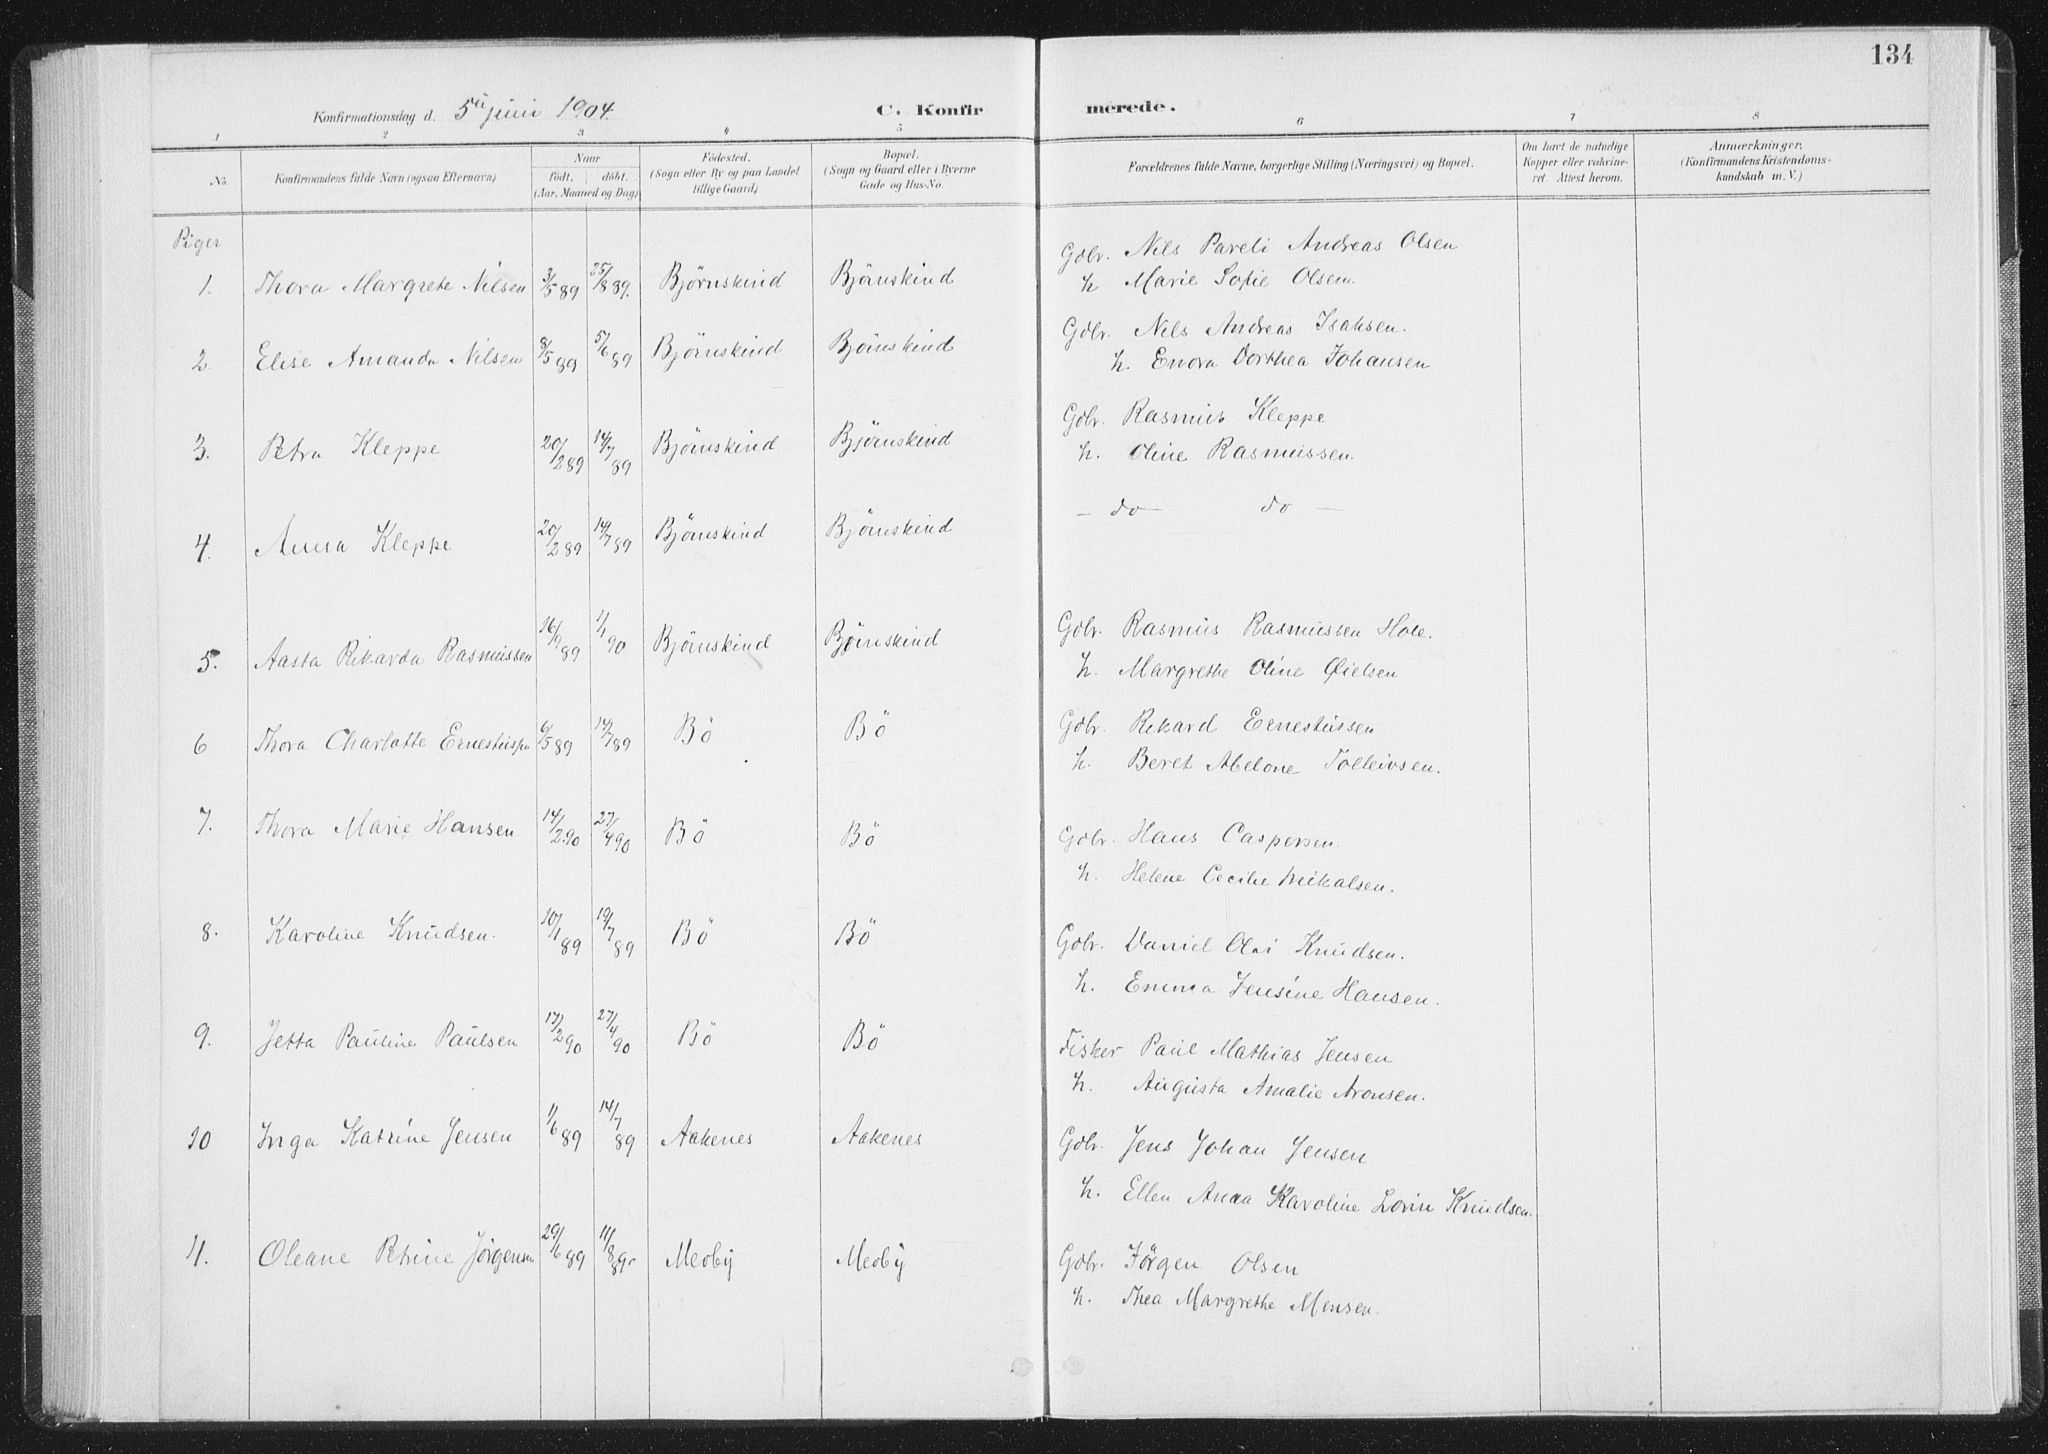 134
Konfirmationsdag d. 5te juni 1904. C. Konfirmerede.
1 2 3 4 5 6 7 8
No. Konfirmandens fulde Navn (ogsaa Efternavn) Naar født. døbt. (Aar, Maaned og Dag) Fødested. (Sogn eller By og paa Landet tillige Gaard) Bopæl. (Sogn og Gaard eller i Byerne Gade og Hus-No. Forældrenes fulde Navne, borgerlige Stilling (Næringsvei) og Bopæl. Om havt de naturlige Kopper eller vakcineret. Attest herom. Anmærkninger. (Konfirmandens Kristendomskundskab m. V.)
Piger
1. Thora Margrete Nilsen 3/5 89 25/8 89. Bjørnskind Bjönskind Gdbr. Nils Pareli Andreas Olsen
h Marie Sofie Olsen.
2. Elise Amanda Nilsen 8/5 89 5/6 89 Bjönskind Bjönskind Gdbr. Nils Andreas Isaksen.
h. Enora Dorthea Johansen
3. Petra Kleppe 20/2 89 14/7 89 Bjönskind Bjönskind Gdbr. Rasmus Kleppe
h. Oline Rasmussen.
4. Anna Kleppe 20/2 89 14/7 89 Bjönskind Bjönskind – do – do –
5. Aasta Rikarda Rasmussen 16/9 89 1/1 90 Bjönskind Bjönskind Gdbr. Rasmus Rasmussen Hole.
h. Margrethe Oline Øielsen
6 Thora Charlotte Ernestuss 6/5 89 14/7 89 Bö Bö Gdbr. Rikard Ernestussen
h. Beret Abelone Tolleivsen.
7. Thora Marie Hansen 14/2 90 27/4 90 Bö Bö Gdbr. Hans Caspersen.
h. Helene Cecilie Mikalsen.
8. Karoline Knudsen. 10/1 89 19/7 89 Bö Bö Gdbr. Daniel Olai Knudsen.
h. Emma Jensine Hansen.
9. Jetta Pauline Paulsen 17/2 90 27/4 90 Bö Bö Fisker Paul Mathias Jensen
h. Augusta Amalie Aronsen.
10 Inga Katrine Jensen 1/6 89 14/7 89 Aakenes Aakenes Gdbr. Jens Johan Jensen
h. Ellen Anna Karoline Lovise Knudsen.
11. Oleane Petrine Jørgensen 29/6 89 11/8 89. Medby Medby Gdbr. Jörgen Olsen
h. Thea Margrethe Monsen.